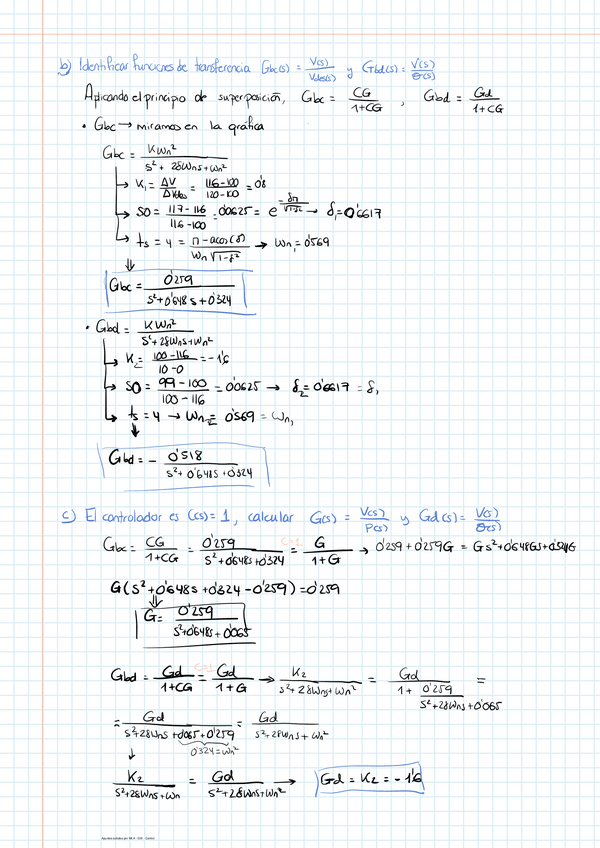 b) Identificar funciones de transferencia Gbc(s) = V(s)/Vdes(s) y Gbd(s) = V(s)/θ(s)
Aplicando el principio de superposición, Gbc = CG/(1+CG) , Gbd = Gd/(1+CG)
• Gbc → miramos en la gráfica
Gbc = KWn²/(s² + 2δWns + Wn²)
→ K₁ = ΔV/ΔVdes = (116-100)/(120-100) = 0'8
→ SO = (117-116)/(116-100) = 0'0625 = e^(-δπ/√(1-δ²)) → δ₁ = 0'6617
→ ts = 4 = (π - acos(δ))/(Wn√(1-δ²)) → Wn₁ = 0'569
⇓
Gbc = 0'259/(s² + 0'648s + 0'324)
• Gbd = KWn²/(s² + 2δWns + Wn²)
→ K₂ = (100-116)/(10-0) = -1'6
→ SO = (99-100)/(100-116) = 0'0625 → δ₂ = 0'6617 = δ₁
→ ts = 4 → Wn₂ = 0'569 = Wn₁
Gbd = - 0'518/(s² + 0'648s + 0'324)
c) El controlador es C(s) = 1, calcular G(s) = V(s)/P(s) y Gd(s) = V(s)/θ(s)
Gbc = CG/(1+CG) = 0'259/(s² + 0'648s + 0'324) = C=1 G/(1+G) → 0'259 + 0'259G = Gs² + 0'648Gs + 0'324G
G(s² + 0'648s + 0'324 - 0'259) = 0'259
⇓
G = 0'259/(s² + 0'648s + 0'065)
Gbd = Gd/(1+CG) = C=1 Gd/(1+G) → K₂/(s² + 2δWns + Wn²) = Gd/(1 + 0'259/(s² + 2δWns + 0'065)) =
= Gd/(s² + 2δWns + 0'065 + 0'259) = Gd/(s² + 2δWns + Wn²)
0'324 = Wn²
↓
K₂/(s² + 2δWns + Wn) = Gd/(s² + 2δWns + Wn²) → Gd = K₂ = -1'6